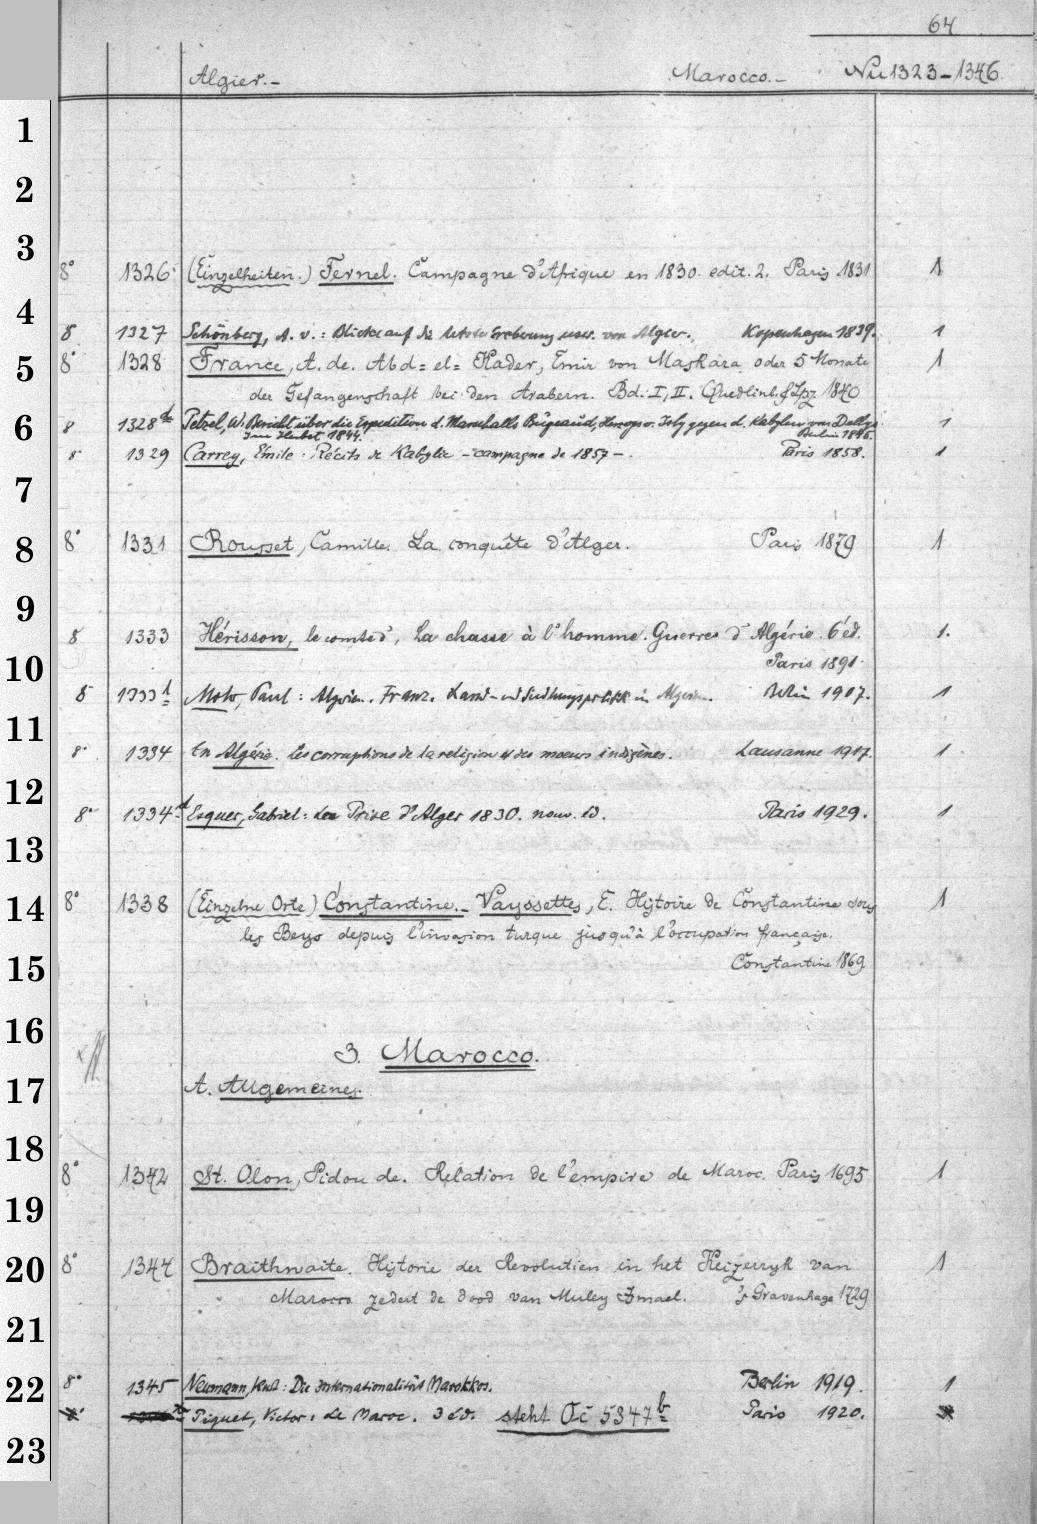 64
Algier.- Marocco.- Nu 1323-1346.
1
2
3
8° 1326. (Einzelheiten.) Fernel. Campagne d'Afrique en 1830. edit. 2. Paris 1831 1
4
8 1327 Schönberg, A. v.: Blicke auf die letzte Eroberung usw. von Algier. Kopenhagen 1839. 1
5
8° 1328 France, A. de. Abd=el=Kader, Emir von Maskara oder 5 Monate 1
der Gefangenschaft bei den Arabern. Bd. I, II. Quedlinb. & Lpz. 1840
6
8 1328 Petzel, W. Bericht über die Expedition d. Marschalls Bugeaud, Herzogs v. Isly gegen d. Kabylen von Dellys 1
Im Herbst 1844. Berlin 1846.
8 1329 Carrey, Émile. Récits de Kabylie - campagne de 1857 -. Paris 1858. 1
7
8
8° 1331 Rousset, Camille. La conquête d'Alger. Paris 1879 1
9
8 1333 Hérisson, le comte d', La chasse à l'homme. Guerres d'Algérie. 6 éd. 1.
Paris 1891.
10
8 1333 1 Mohr, Paul: Algerien. Franz. Land- und Siedlungspolitik in Algerien. Berlin 1907. 1
11
8° 1334 En Algérie. Les corruptions de la religion et des moeurs indigènes. Lausanne 1917. 1
12
8° 1334 d Esquer, Gabriel: La Prise d'Alger 1830. nouv. éd. Paris 1929. 1
13
14
8° 1338 (Einzelne Orte) Constantine.- Vayssettes, E. Histoire de Constantine sous 1
les Beys depuis l'invasion turque jusqu'à l'occupation française.
15
Constantine 1869
16
3. Marocco.
17
A. Allgemeines.
18
8° 1342 St. Olon, Pidou de. Relation de l'empire de Maroc. Paris 1695 1
19
20
8° 1344 Braithwaite. Historie der Revolutien in het Keizerryk van 1
Marocco zedert de dood van Muley Ismael. 's Gravenhage 1729
21
22
8° 1345 Neumann, Kurt: Die Internationalität Marokkos. Berlin 1919. 1
Piquet, Victor: Le Maroc. 3 éd. steht Oc̆ 5347 b Paris 1920.
23